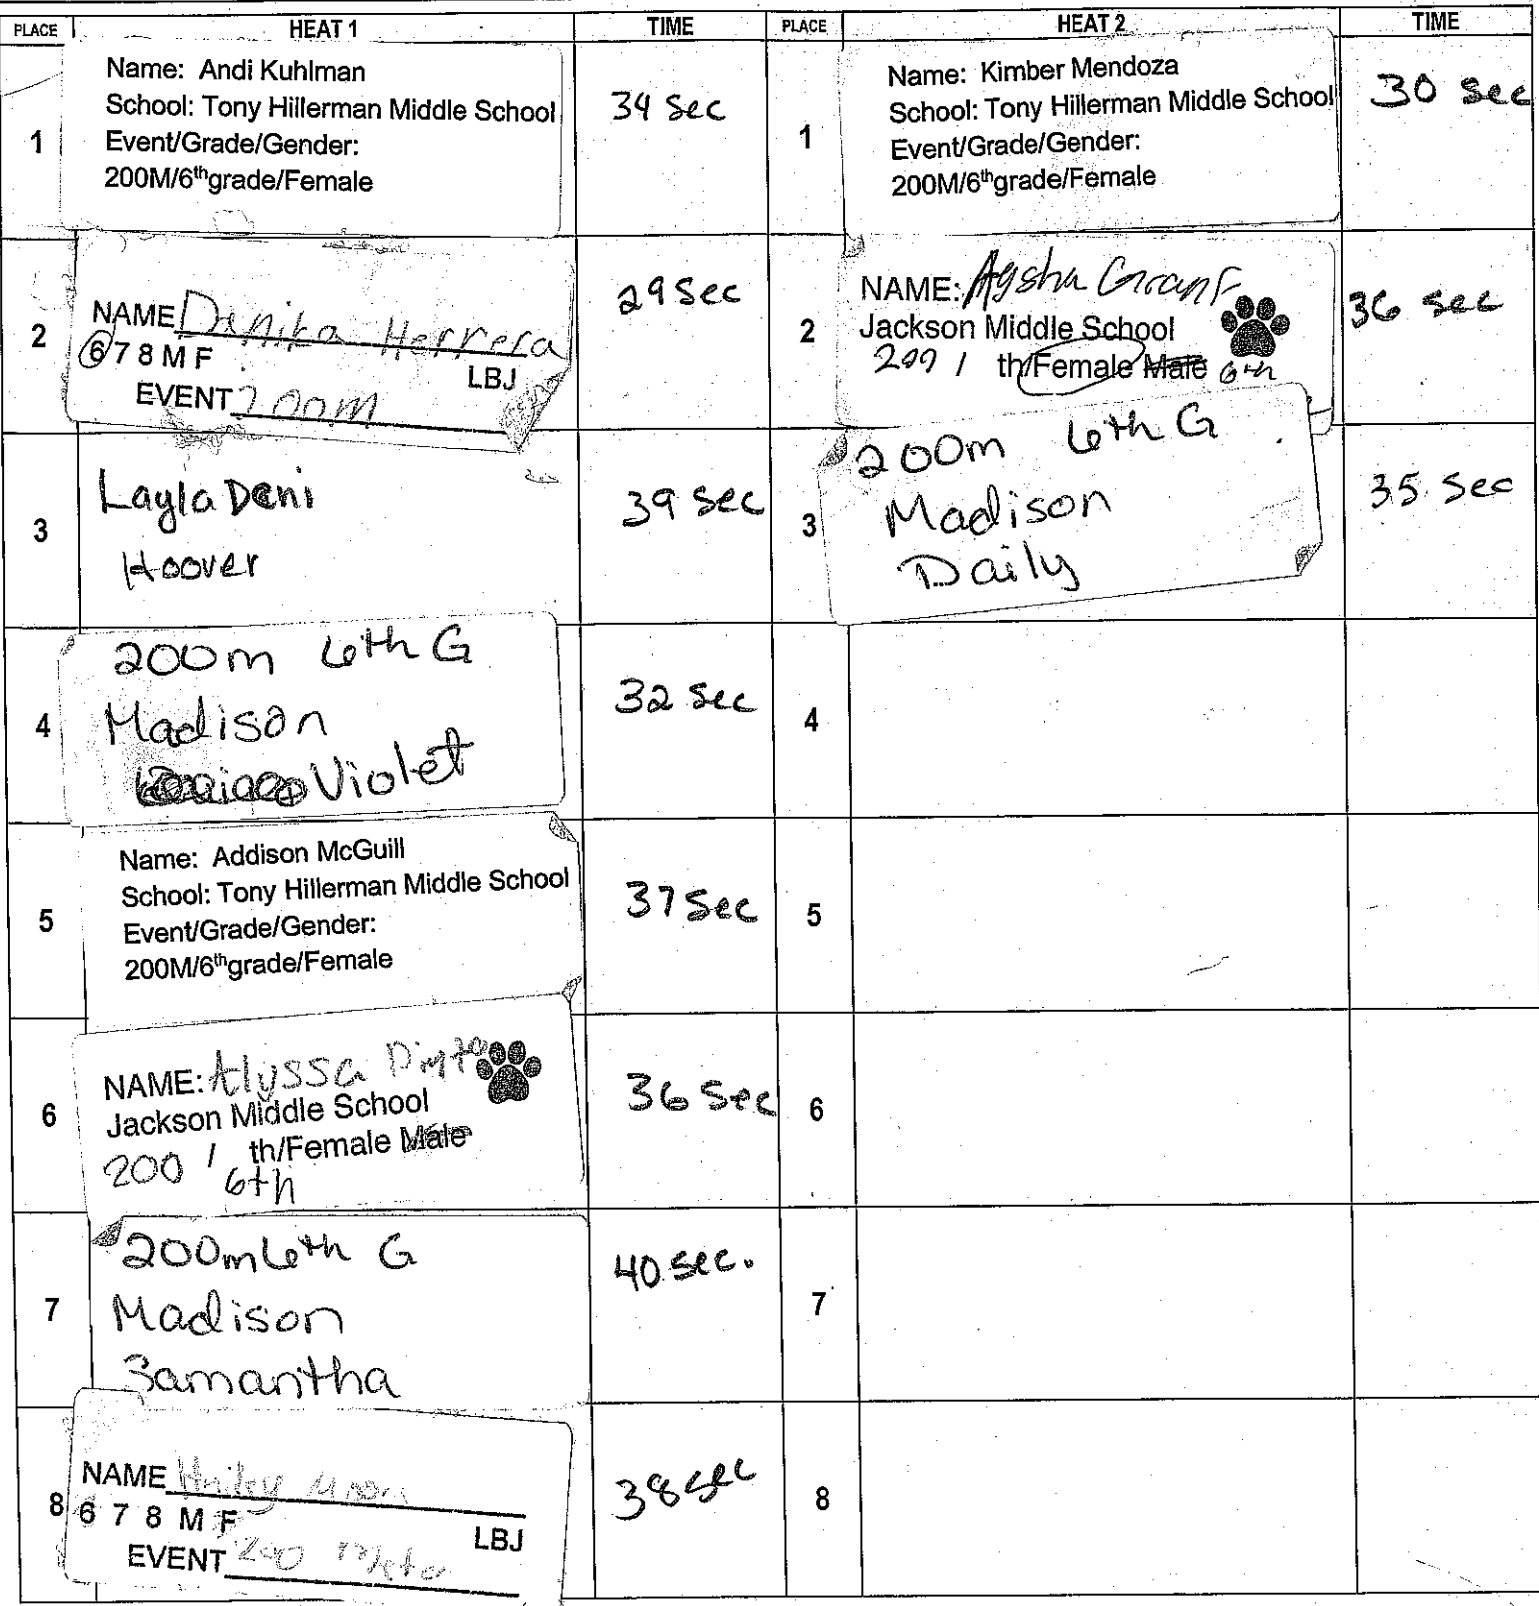 PLACE HEAT 1 TIME PLACE HEAT 2 TIME
1
Name: Andi Kuhlman
School: Tony Hillerman Middle School
Event/Grade/Gender:
200M/6thgrade/Female
34 sec
1
Name: Kimber Mendoza
School: Tony Hillerman Middle School
Event/Grade/Gender:
200M/6thgrade/Female
30 sec
2
NAME Danika Herrera
6 7 8 M F
LBJ
EVENT 200m
29 sec
2
NAME: Aysha Grant
Jackson Middle School
200 / th/Female Male 6th
36 sec
3
Layla Deni
Hoover
39 sec
3
200m 6th G
Madison
Daily
35 sec
4
200m 6th G
Madison
Violet
32 sec
4
5
Name: Addison McGuill
School: Tony Hillerman Middle School
Event/Grade/Gender:
200M/6thgrade/Female
37 sec
5
6
NAME: Alyssa Pinto
Jackson Middle School
200 / th/Female Male
6th
36 sec
6
7
200m 6th G
Madison
Samantha
40 sec.
7
8
NAME Hailey
6 7 8 M F
LBJ
EVENT 200 meter
38 sec
8